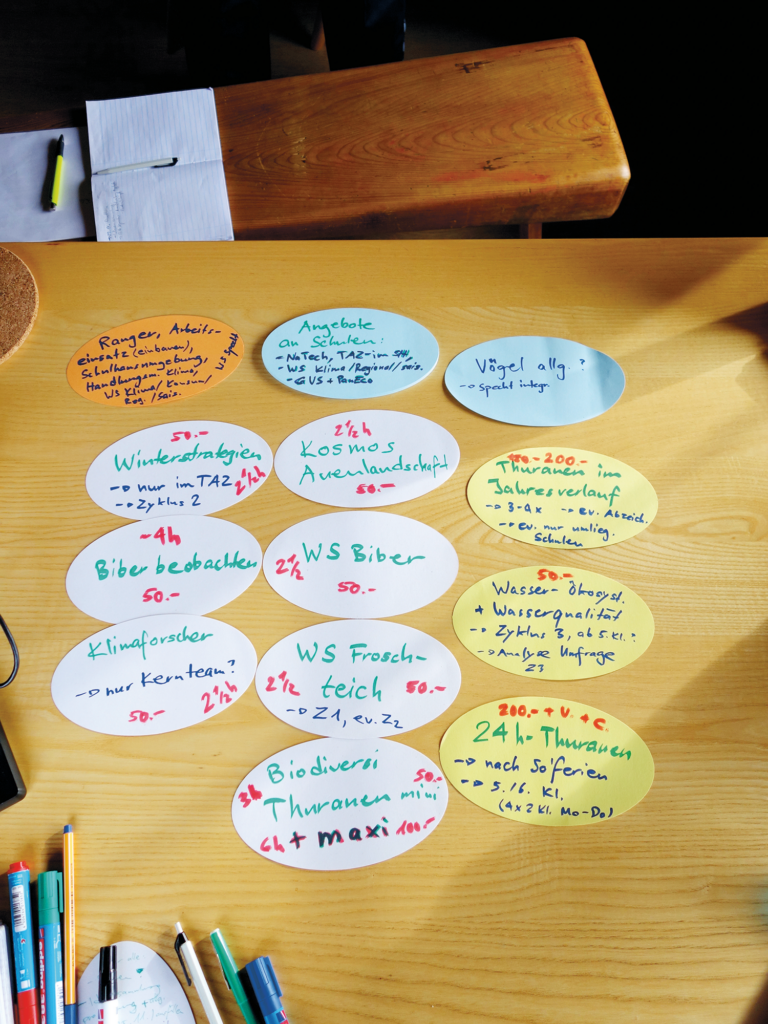 Ranger, Arbeits-
einsatz (einbauen),
Schulhausumgebung,
Handlungsm. Klima,
WS Klima/Konsum/
Reg./Sais.
WS Specht
Angebote
an Schulen:
- NaTech, TAZ-im SH,
- WS Klima/Regional/sais.
- GVS + PanEco
Vögel allg. ?
-> Specht integr.
50.-
Winterstrategien
-> nur im TAZ
-> Zyklus 2
2 1/2 h
2 1/2 h
Kosmos
Auenlandschaft
50.-
150.-200.-
Thurauen im
Jahresverlauf
-> 3-4x -> ev. Abzeich.
-> ev. nur umlieg.
Schulen
-4h
Biber beobachten
50.-
WS Biber
2 1/2
50.-
50.-
Wasser-Ökosyst.
+ Wasserqualität
-> Zyklus 3, ab 5.Kl.?
-> Analyse Umfrage
Z3
Klimaforscher
-> nur Kernteam?
50.- 2 1/2 h
WS Frosch-
teich
2 1/2 50.-
-> Z1, ev. Z2
200.- + V. + C.
24h-Thurauen
-> nach So'ferien
-> 5./6. Kl.
(4x2 Kl. Mo-Do)
Biodiversi
50.-
3h Thurauen mini
6h + maxi 100.-